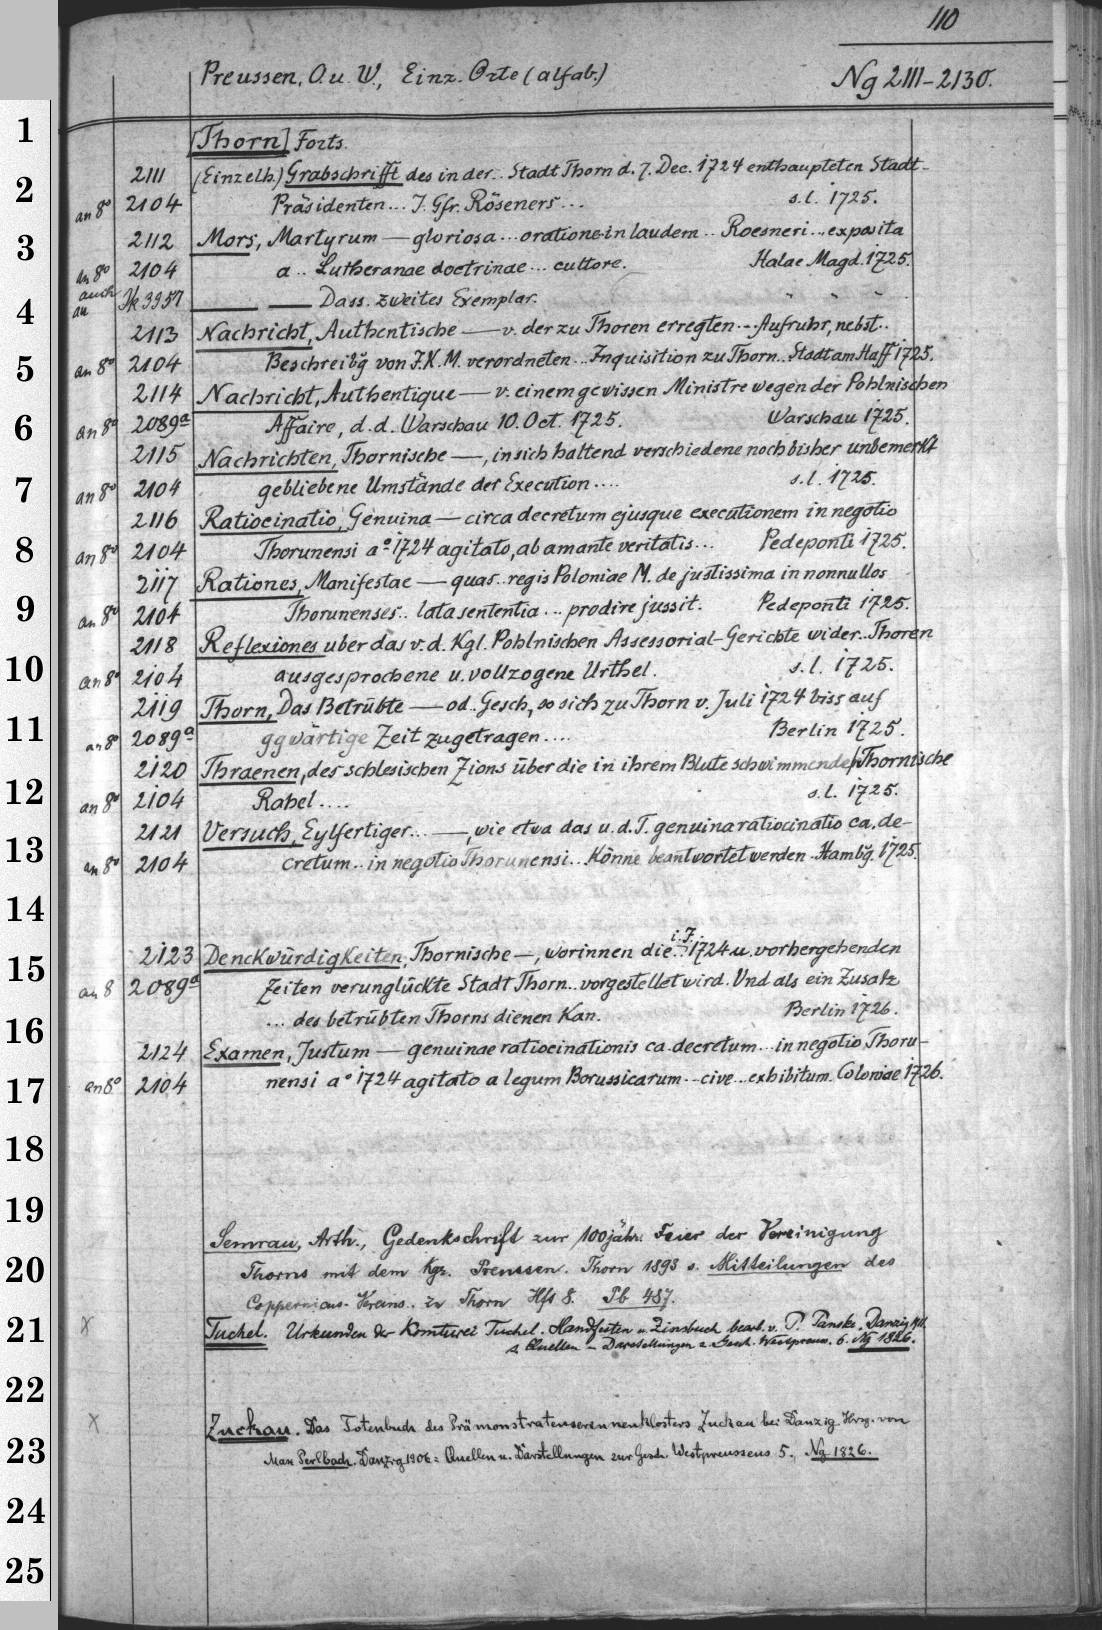 110
Preussen, O. u. W., Einz. Orte (alfab.) Ng 2111-2130.
1
[Thorn] Forts.
2111 (Einzelh.) Grabschrifft des in der.. Stadt Thorn d. 7. Dec. 1724 enthaupteten Stadt-
2
an 8° 2104 Präsidenten... J. Gfr. Röseners... s.l. 1725.
3
2112 Mors, Martyrum — gloriosa...oratione in laudem .. Roesneri...exposita
an 8° 2104 a.. Lutheranae doctrinae... cultore. Halae Magd. 1725.
auch
4
an Jk 3957 — — Dass. zweites Exemplar. " " "
2113 Nachricht, Authentische — v. der zu Thoren erregten...Aufruhr, nebst..
5
an 8° 2104 Beschreibg von J.K.M. verordneten...Inquisition zu Thorn.. Stadt am Haff 1725.
2114 Nachricht, Authentique — v. einem gewissen Ministre wegen der Pohlnischen
6
an 8° 2089a Affaire, d.d. Warschau 10. Oct. 1725. Warschau 1725.
2115 Nachrichten, Thornische —, in sich haltend verschiedene noch bisher unbemerkt
7
an 8° 2104 gebliebene Umstände der Execution.... s.l. 1725.
2116 Ratiocinatio, Genuina — circa decretum ejusque executionem in negotio
8
an 8° 2104 Thorunensi a° 1724 agitato, ab amante veritatis... Pedeponti 1725.
2117 Rationes, Manifestae — quas..regis Poloniae M. de justissima in nonnullos
9
an 8° 2104 Thorunenses.. lata sententia... prodire jussit. Pedeponti 1725.
2118 Reflexiones uber das v.d. Kgl. Pohlnischen Assessorial-Gerichte wider..Thoren
10
an 8° 2104 ausgesprochene u. vollzogene Urthel. s.l. 1725.
2119 Thorn, Das Betrübte — od. Gesch, so sich zu Thorn v. Juli 1724 biss auf
11
an 8° 2089a ggwärtige Zeit zugetragen.... Berlin 1725.
2120 Thraenen, des schlesischen Zions über die in ihrem Blute schwimmende Thornische
12
an 8° 2104 Rahel.... s.l. 1725.
2121 Versuch, Eylfertiger... —, wie etwa das u.d.T. genuina ratiocinatio ca. de-
13
an 8° 2104 cretum.. in negotio Thorunensi.. Könne beantwortet werden. Hambg. 1725.
14
i.J.
2123 Denckwürdigkeiten, Thornische —, worinnen die...1724 u. vorhergehenden
15
an 8 2089a Zeiten verunglückte Stadt Thorn.. vorgestellet wird. Und als ein Zusatz
... des betrübten Thorns dienen Kan. Berlin 1726.
16
2124 Examen, Justum — genuinae ratiocinationis ca. decretum... in negotio Thoru-
17
an 8° 2104 nensi a° 1724 agitato a legum Borussicarum...cive...exhibitum. Coloniae 1726.
18
19
Semrau, Arth., Gedenkschrift zur 100jähr. Feier der Vereinigung
20
Thorns mit dem Kgr. Preussen. Thorn 1893 s. Mitteilungen des
Coppernicus-Vereins. zu Thorn Hft 8. Pb 487.
21
X Tuchel. Urkunden der Komturei Tuchel. Handfesten u. Zinsbuch bearb. v. P. Panske. Danzig
s. Quellen u. Darstellungen z. Gesch. Westpreuss. 6. Ng 1826.
22
X Zuckau. Das Totenbuch des Prämonstratenserinnenklosters Zuckau bei Danzig. Hrsg. von
23
Max Perlbach. Danzig 1906 = Quellen u. Darstellungen zur Gesch. Westpreussens 5., Ng 1826.
24
25